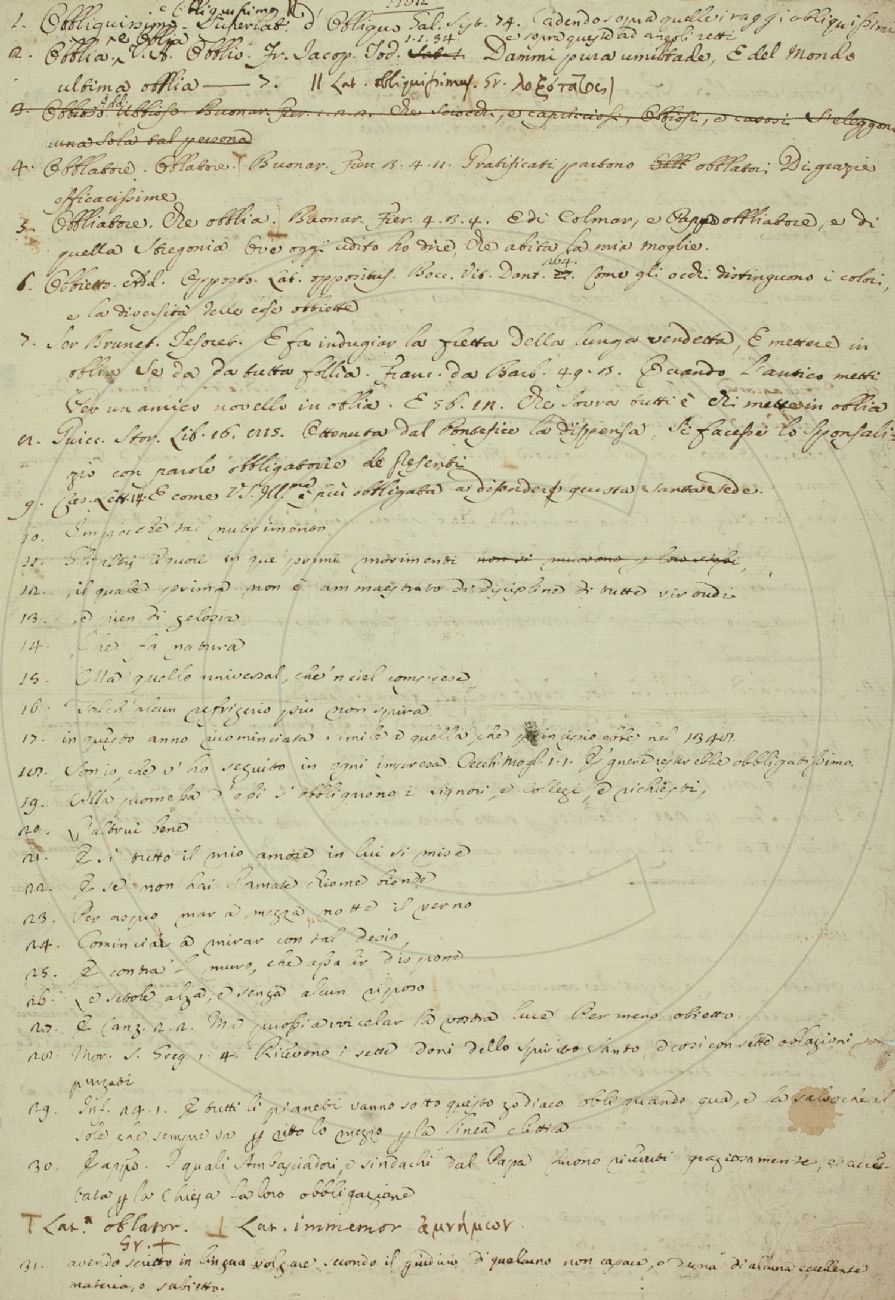 e Obbliquissimo
1. Obbliquissimo. Superlat. d' Obbliquo Gal. Sist. 74. Cadendo sopra quelle i raggi obbliquissimi
1. 1. 34. e sopra questa ad angoli retti
2. Obblia, e Oblia V. A. Obblio. Fr. Jacop. Tod. Dammi pura umiltade, E del Mondo
ultima obblia — 7. || Lat. obliquissimus. Gr.
3. Obbioso Add. Ubbioso. Buonar. Fier. Che sciocchi, e capricciosi, Obbiosi, e Si leggono
una sola tal persona
4. Obblatore. Oblatore. T Buonar. Fier. 3. 4. 11. Gratificati partono obblatori Di grazie
efficacissime
5. Obbliatore. Che obblia. Buonar. Fier. 4. 3. 4. E di Colmar, e obbliatore, e di
quella Stregonia Ove oggi udito ho dire, Che abita la mia moglie.
6. Obbietto. Add. Opposto. Lat. oppositus. Bocc. Vit. Dant. 264. Come gli occhi distinguono i colori,
e la diversità delle cose obbiette
7. Ser Brunet. Tesoret. E fa indugiar la fretta Della lunga vendetta, E mettere in
oblia Se da da tutta follia. Franc. da Barb. 49. 13. Quando l'antico metti
Per un amico novello in oblia. E 56. Che sovra tutti è chi mette in oblia
8. Guicc. Stor. Lib. 16. Ottenuta dal Pontefice la dispensa, si facesse lo sponsali-
zio con parole obbligatorie de presenti
9. Cas. Lett. 14. E come V. S. Ill.ma è più obbligata a difender questa santa sede.
10. Imperocchè tal nutrimento
11. in que' primi movimenti non si muovono
12. , il quale prima non è ammaestrato di disciplina di tutte virtudi
13. , e pien di gelosia
14. , Che fa natura
15. Ma quello universal, che 'n ciel comprese
16. alcun refrigerio più non spira
17. in questo anno ricominciata simile a quella che principio ebbe nel 1348.
18. Son io, che v' ho seguito in ogni impresa. Cecchi Mogl. 1. 1. E gnene resterebbe obbligatissimo.
19. Alla promessa d' essi si obbligarono i signori, e Collegi, e richiesti,
20. L'altrui bene
21. E sì tutto il mio amore in lui si mise
22. E se non hai l'amate chiome bionde
23. Per aspro mar a mezza notte il verno
24. Cominciai a mirar con tal desio,
25. E contra 'l muro, che assalir dispone
26. Le scale alza, e senza alcun riposo
27. E Canz. 2. 2. Ma possia celar la vostra luce Per meno obietto.
28. Mor. S. Greg. 1. 4. Ricevono i sette doni dello Spirito Santo, e così con sette oblazioni son
purgati
29. Inf. 24. 1. E tutti li pianeti vanno sotto questo zodiaco obliquando qua, e la salvo che il
sole che sempre va per ritto lo mezzo per la linea
30. E appo. I quali Ambasciadori, e sindachi dal Papa furono ricevuti graziosamente, e accet-
tata per la Chiesa la loro obbligagione
T Lat. oblator. ⊥ Lat. immemor ἀμνήμων.
Gr. +
31. avendo scritto in lingua volgare secondo il giudizio di qualcuno non capace, o degna di alcuna eccellente
materia, o subietto.